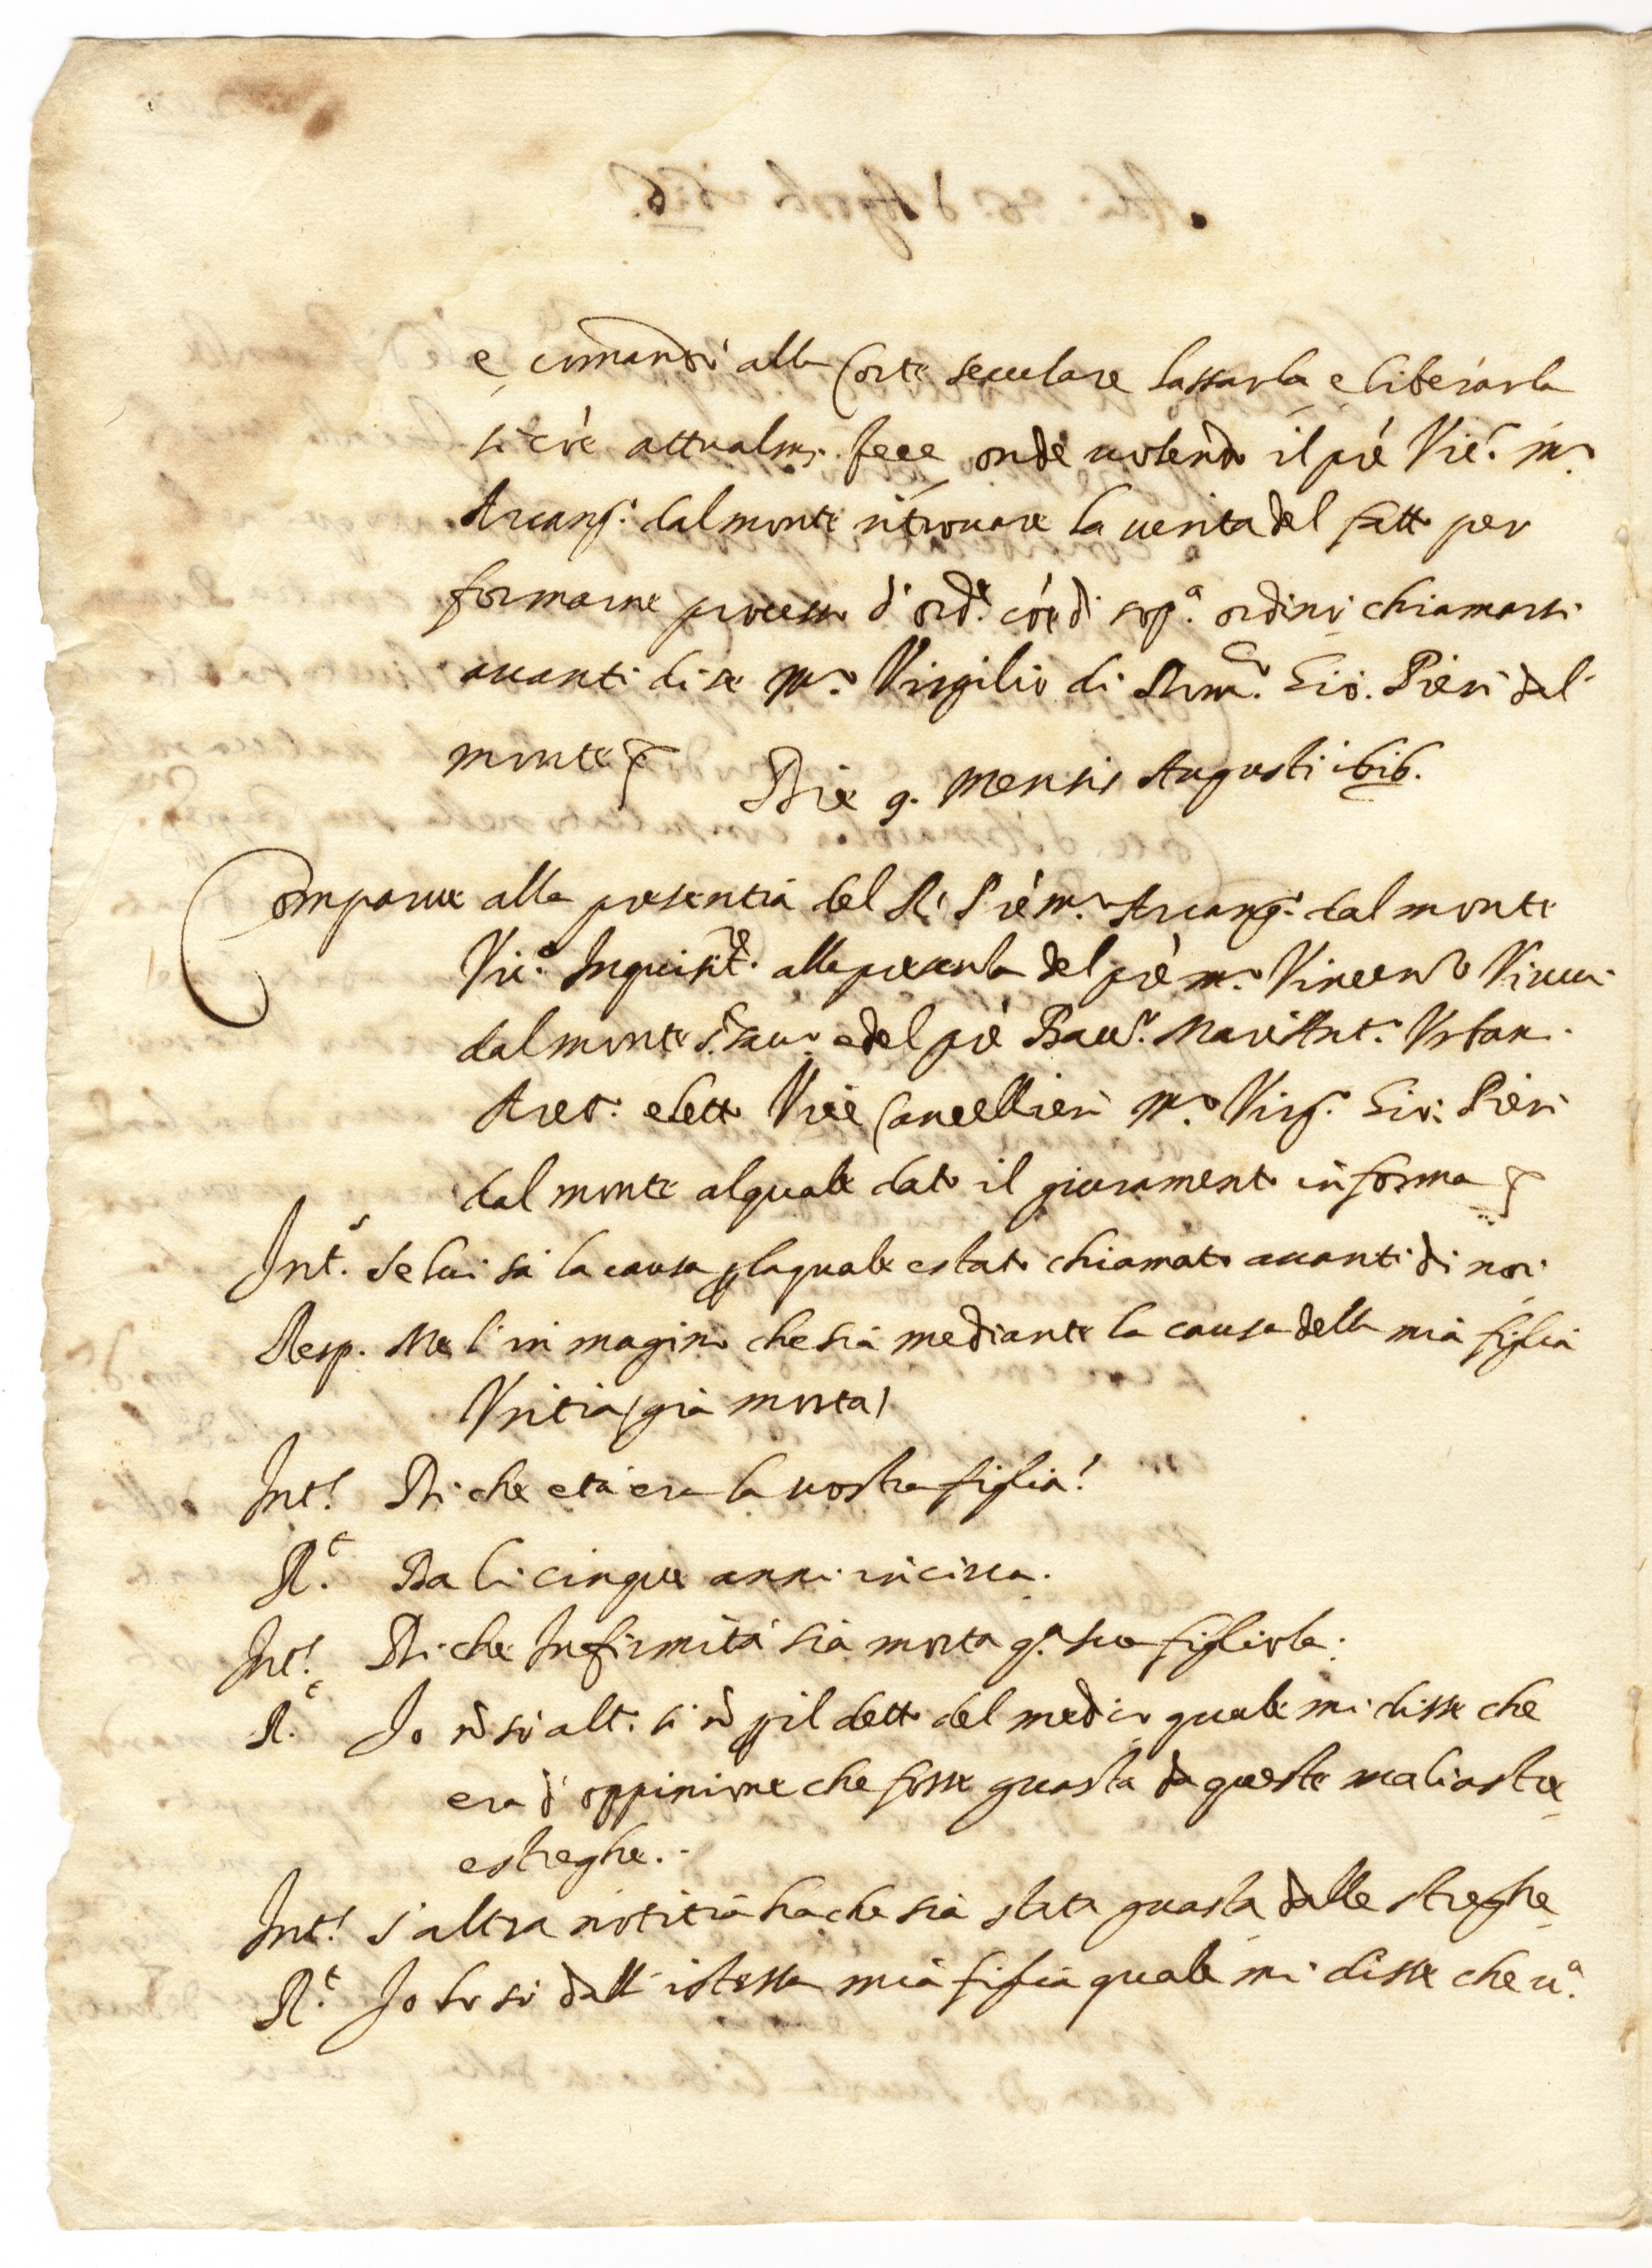 e comandò alla Corte seculare lassarla e liberarla
si c̃òe attualm. fece onde uolendo il prè Vic. mr.
Arcang.o dal monte ritrouare la uerità del fatto per
formarne processo d'ord.e cóe di sop.a ordinò chiamarsi
auanti di se mr. Virgilio di Gio. Pieri dal
monte
Die 9. Mensis Augusti 1616.
Comparue alla presentia del R. Prè mr. Arcang.o dal monte
Vic.o Inquisit.e alla presentia del prè mr. Vincentio
dal monte e del prè Bacc.r Marc'Ant.o Urban.
elett.o Vice Cancellieri mr. Virg.o Gio. Pieri
dal monte al quale dato il giuramento in forma
Int.s se lui sà la causa p la quale è stato chiamato auanti di noi
Resp. Me l'immagino che sia mediante la causa della mia figlia
Uritia (già morta)
Int.s Di che età era la uostra figlia?
R.t Da li cinque anni in circa.
Int.s Di che Infirmità sia morta q.a sua figliola.
R.t Io nõ sò alt.o si nõ p il detto del medico quale mi disse che
era d'oppinione che fosse guasta da queste maliastre
e streghe.
Int.s s'altra notitia ha che sia stata guasta dalle streghe
R.t Io lo sò dall'istessa mia figlia quale mi disse che u.a